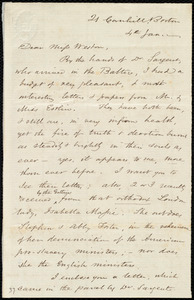 21 Cornhill, Boston
4th Jan.
Dear Miss Weston,
By the hands of Dr Sargent,
who arrived in the Baltic, I had a
budget of very pleasant, & most
interesting letters & papers from Mr. &
Miss Estlin. They have both been,
& still are, in very infirm health,
yet the fire of truth & devotion burns
as steadily & brightly in their souls as
ever: yes, it appears to me, more
than ever before. I want you to
see their letters; also, 2 or 3 rec'd
received, from that orthodox London
lady, Isabella Massie. She out does
Stephen & Abby Foster, in her
denunciation of the American
pro-slavery ministers, nor does
she the English ministers
I enclose you a letter which
came in the parcel by Dr. Sargent